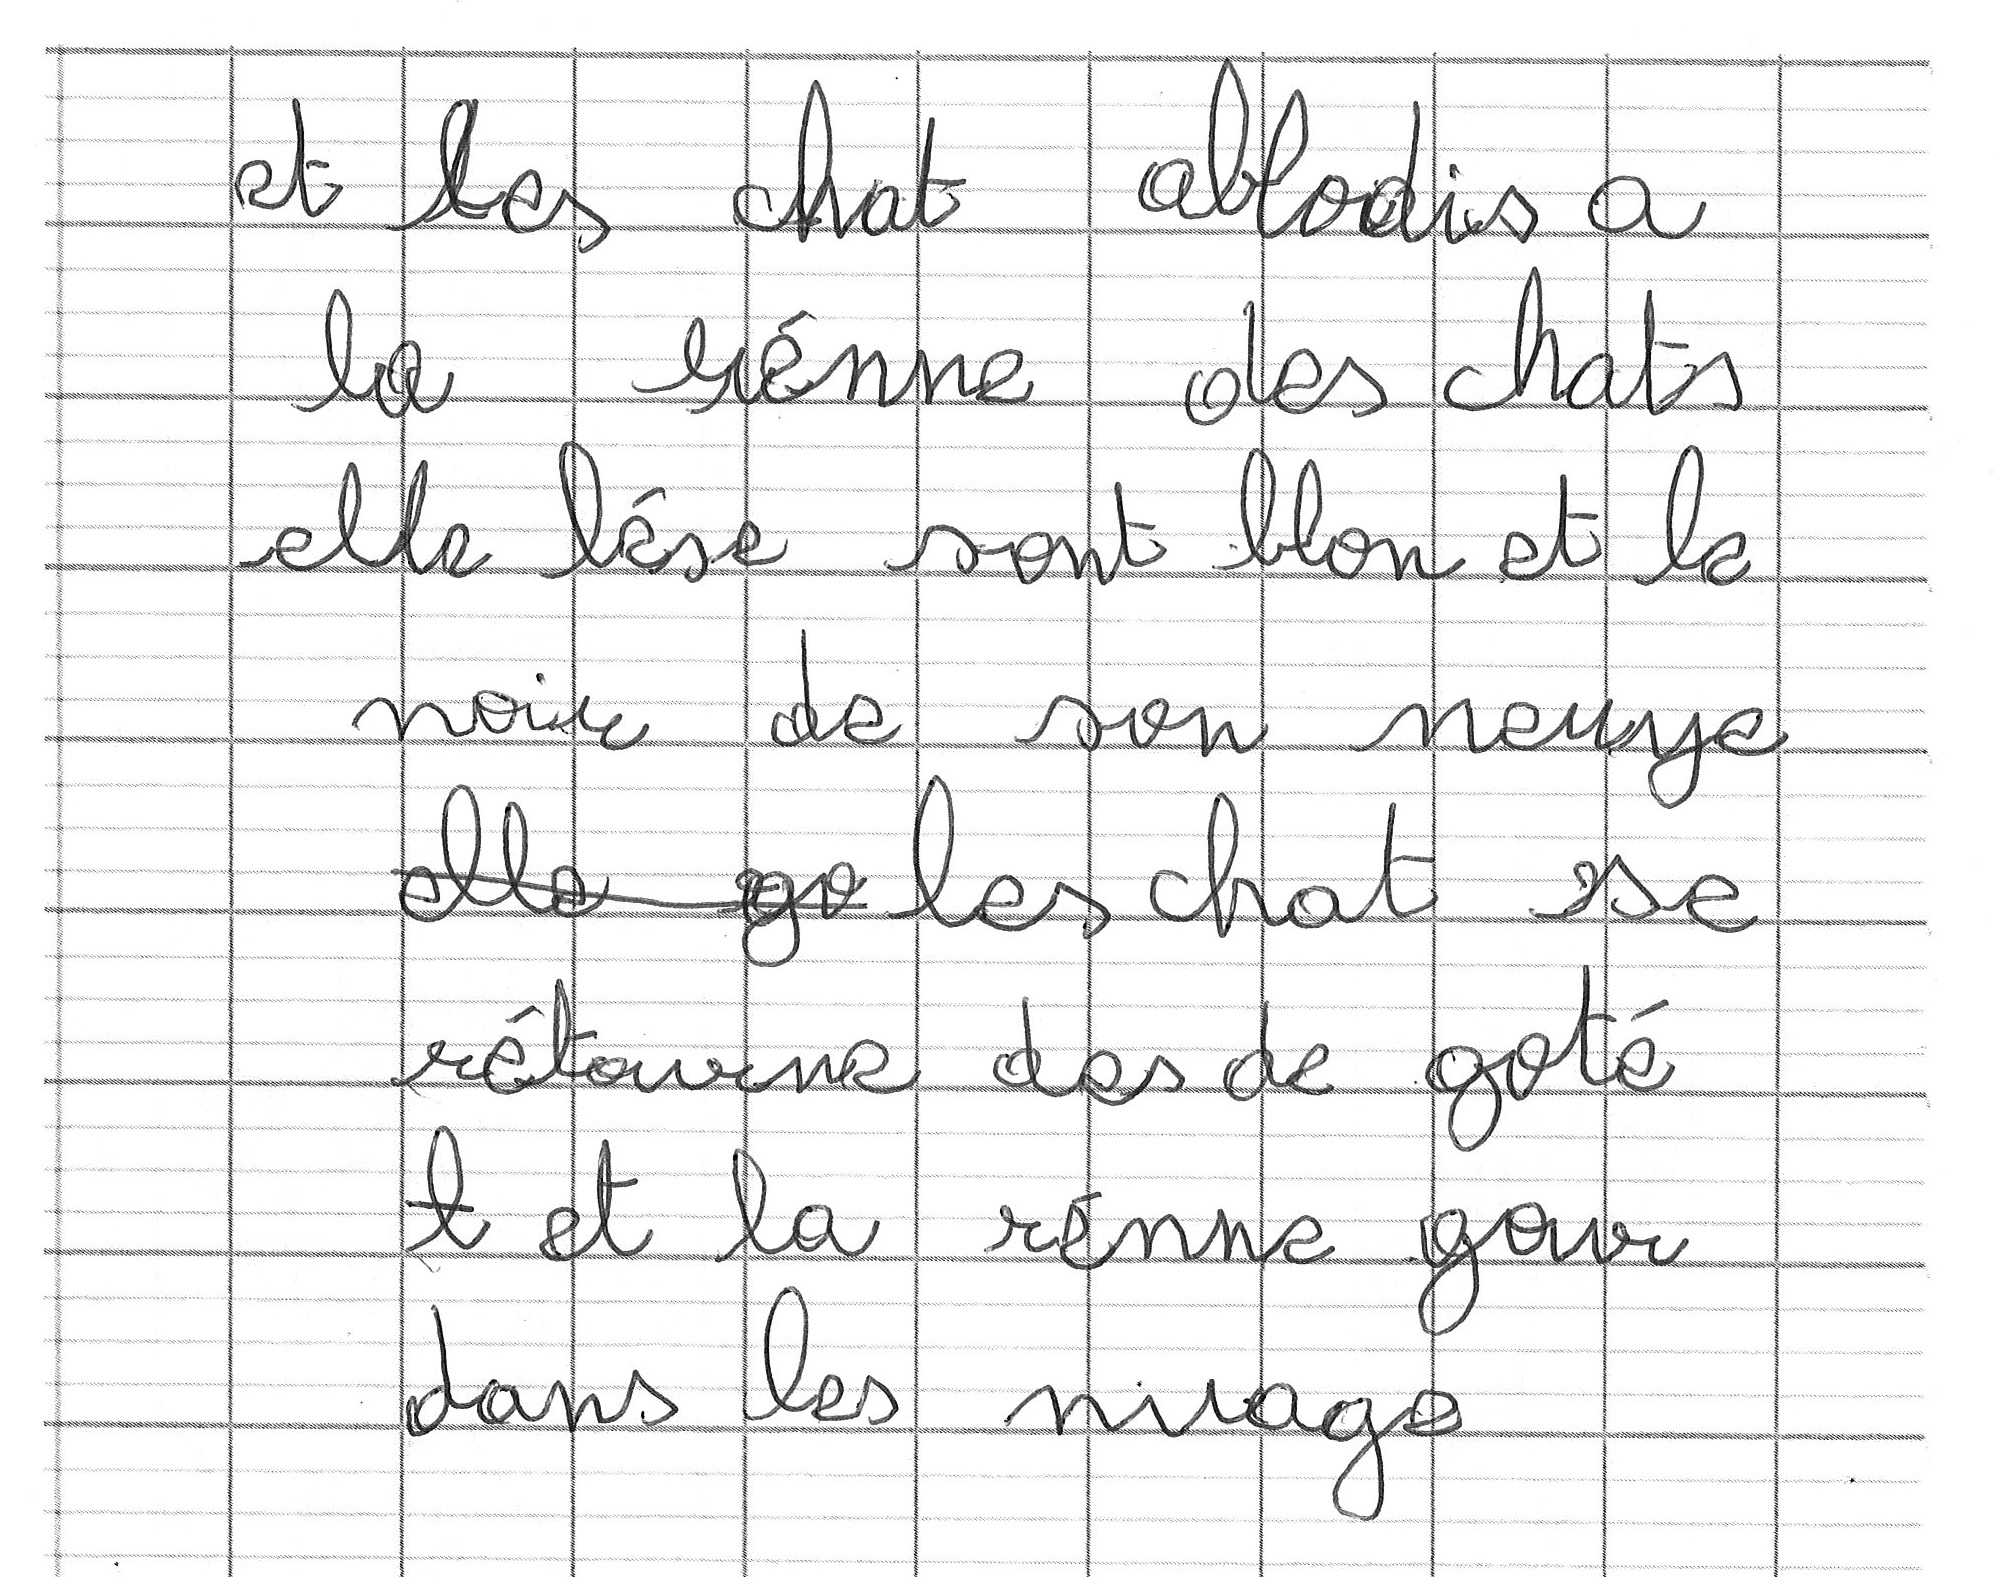 et les chat ablodis a
la rénne des chats
elle lése sont blon et le
noir de son neuye
elle go les chat se
rétourne des de goté
t et la rénne gour
dans les nuage